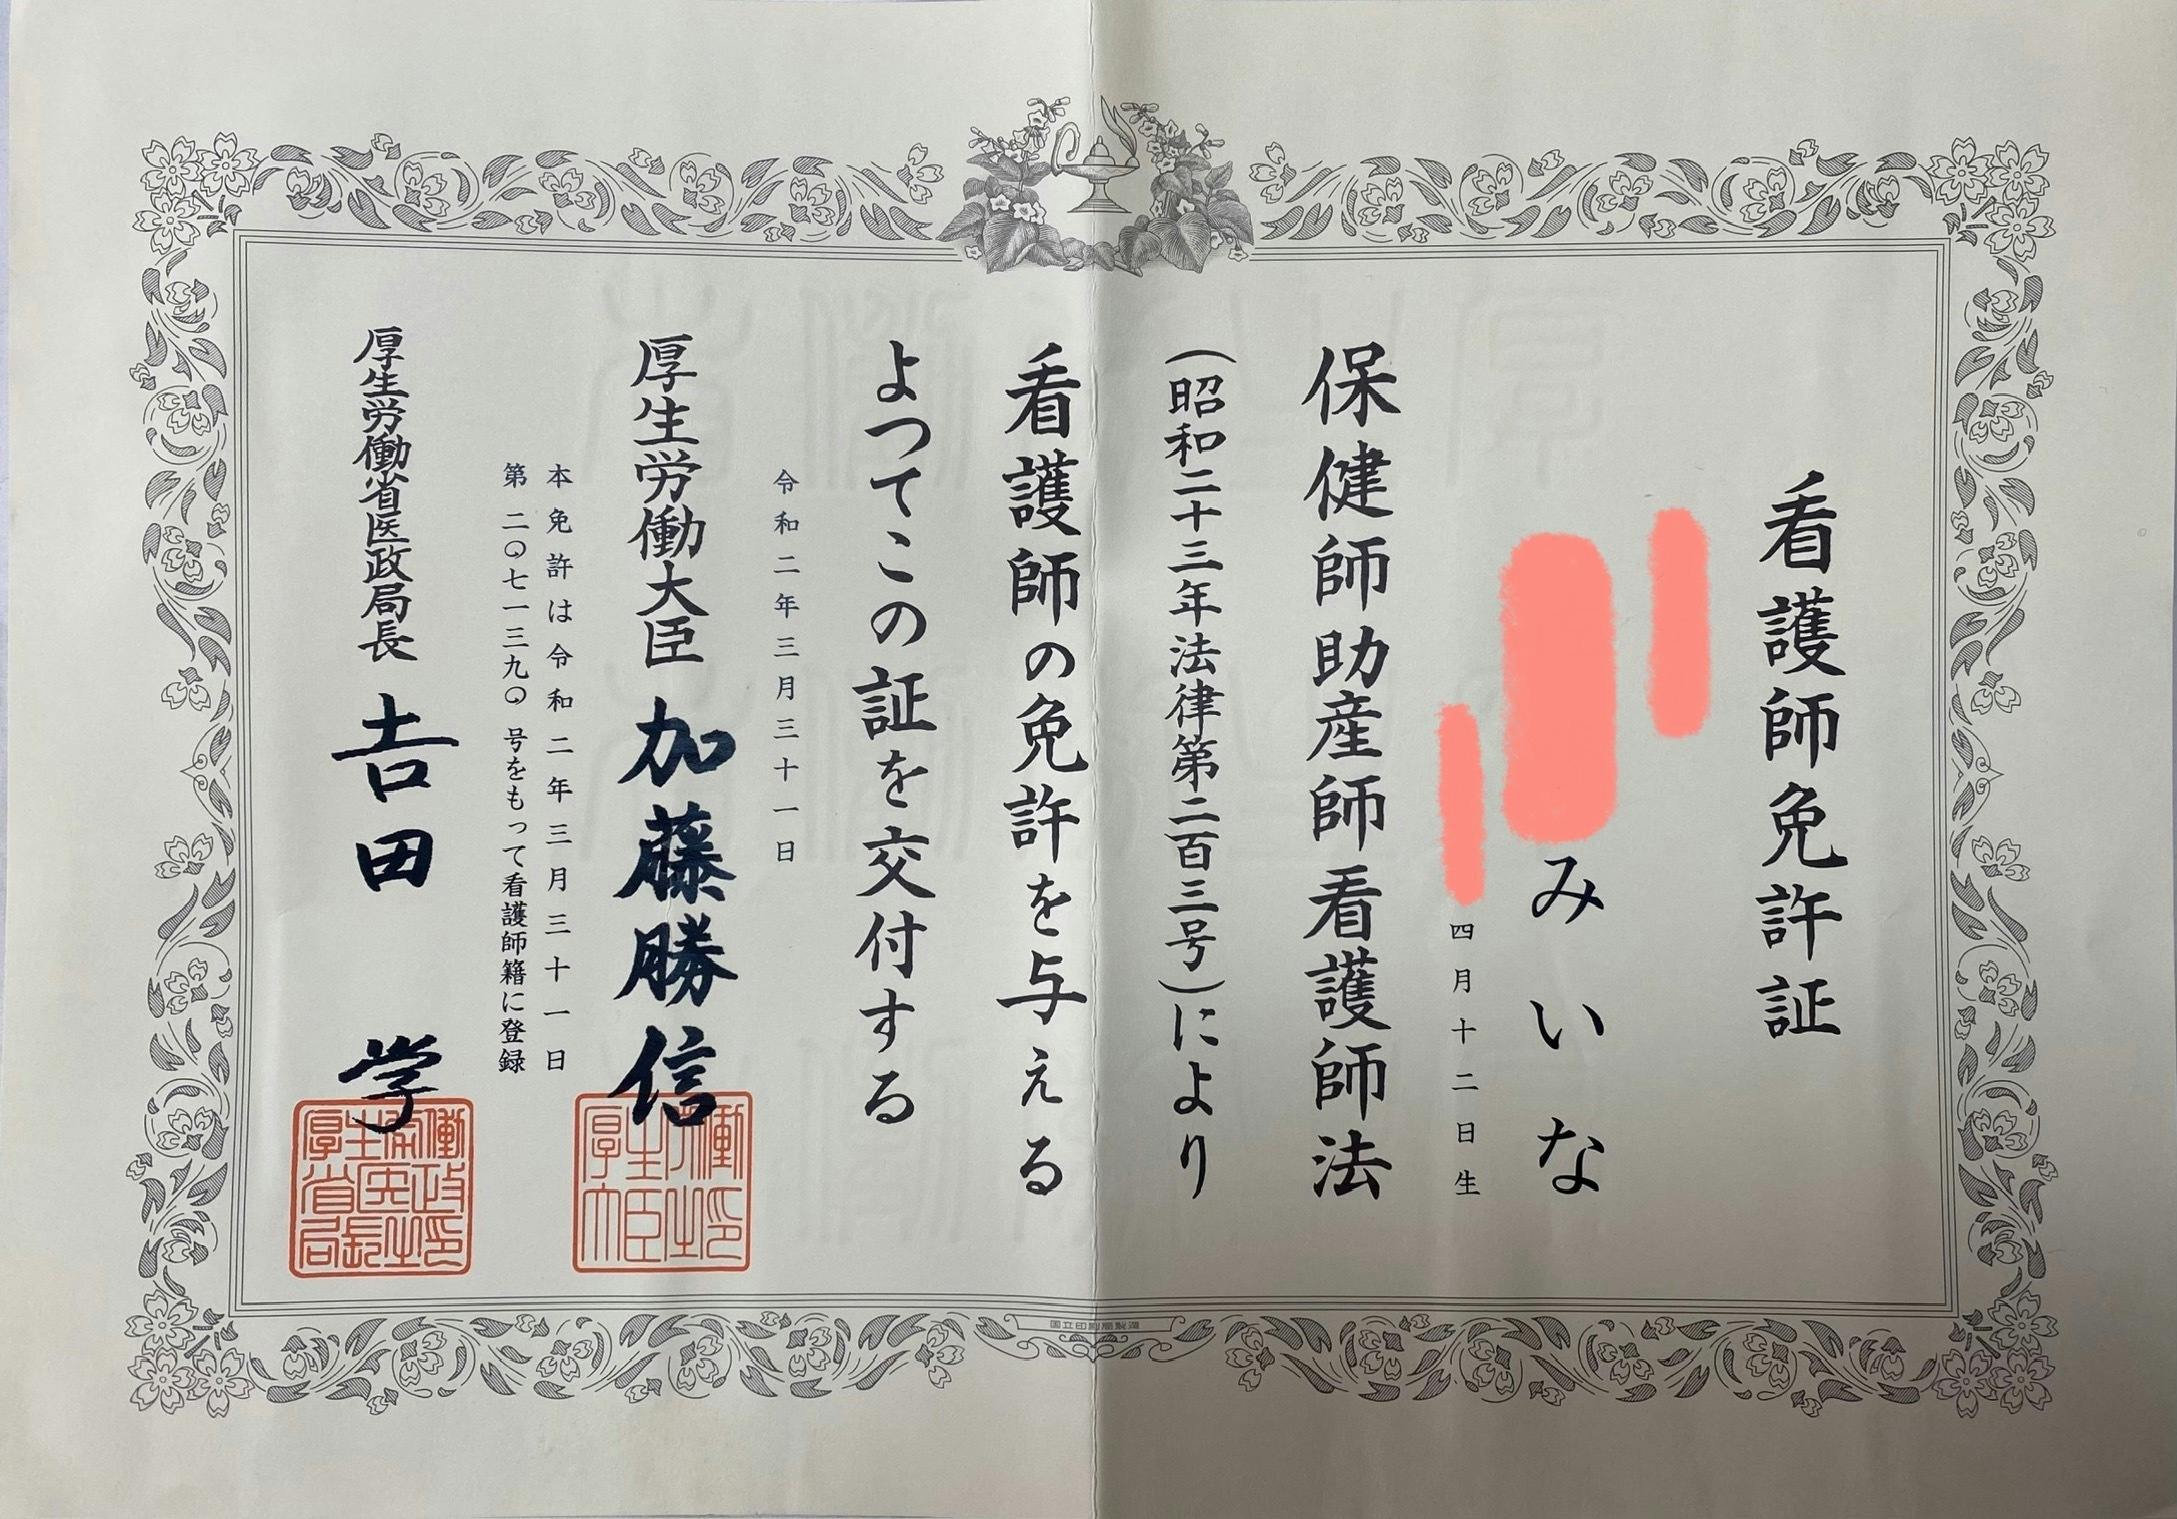 看護師免許証
みいな
四月十二日生
保健師助産師看護師法
(昭和二十三年法律第二百三号)により
看護師の免許を与える
よつてこの証を交付する
令和二年三月三十一日
厚生労働大臣 加藤勝信
本免許は令和二年三月三十一日
第二〇七一三九〇号をもって看護師籍に登録
厚生労働省医政局長 吉田 学
国立印刷局製造